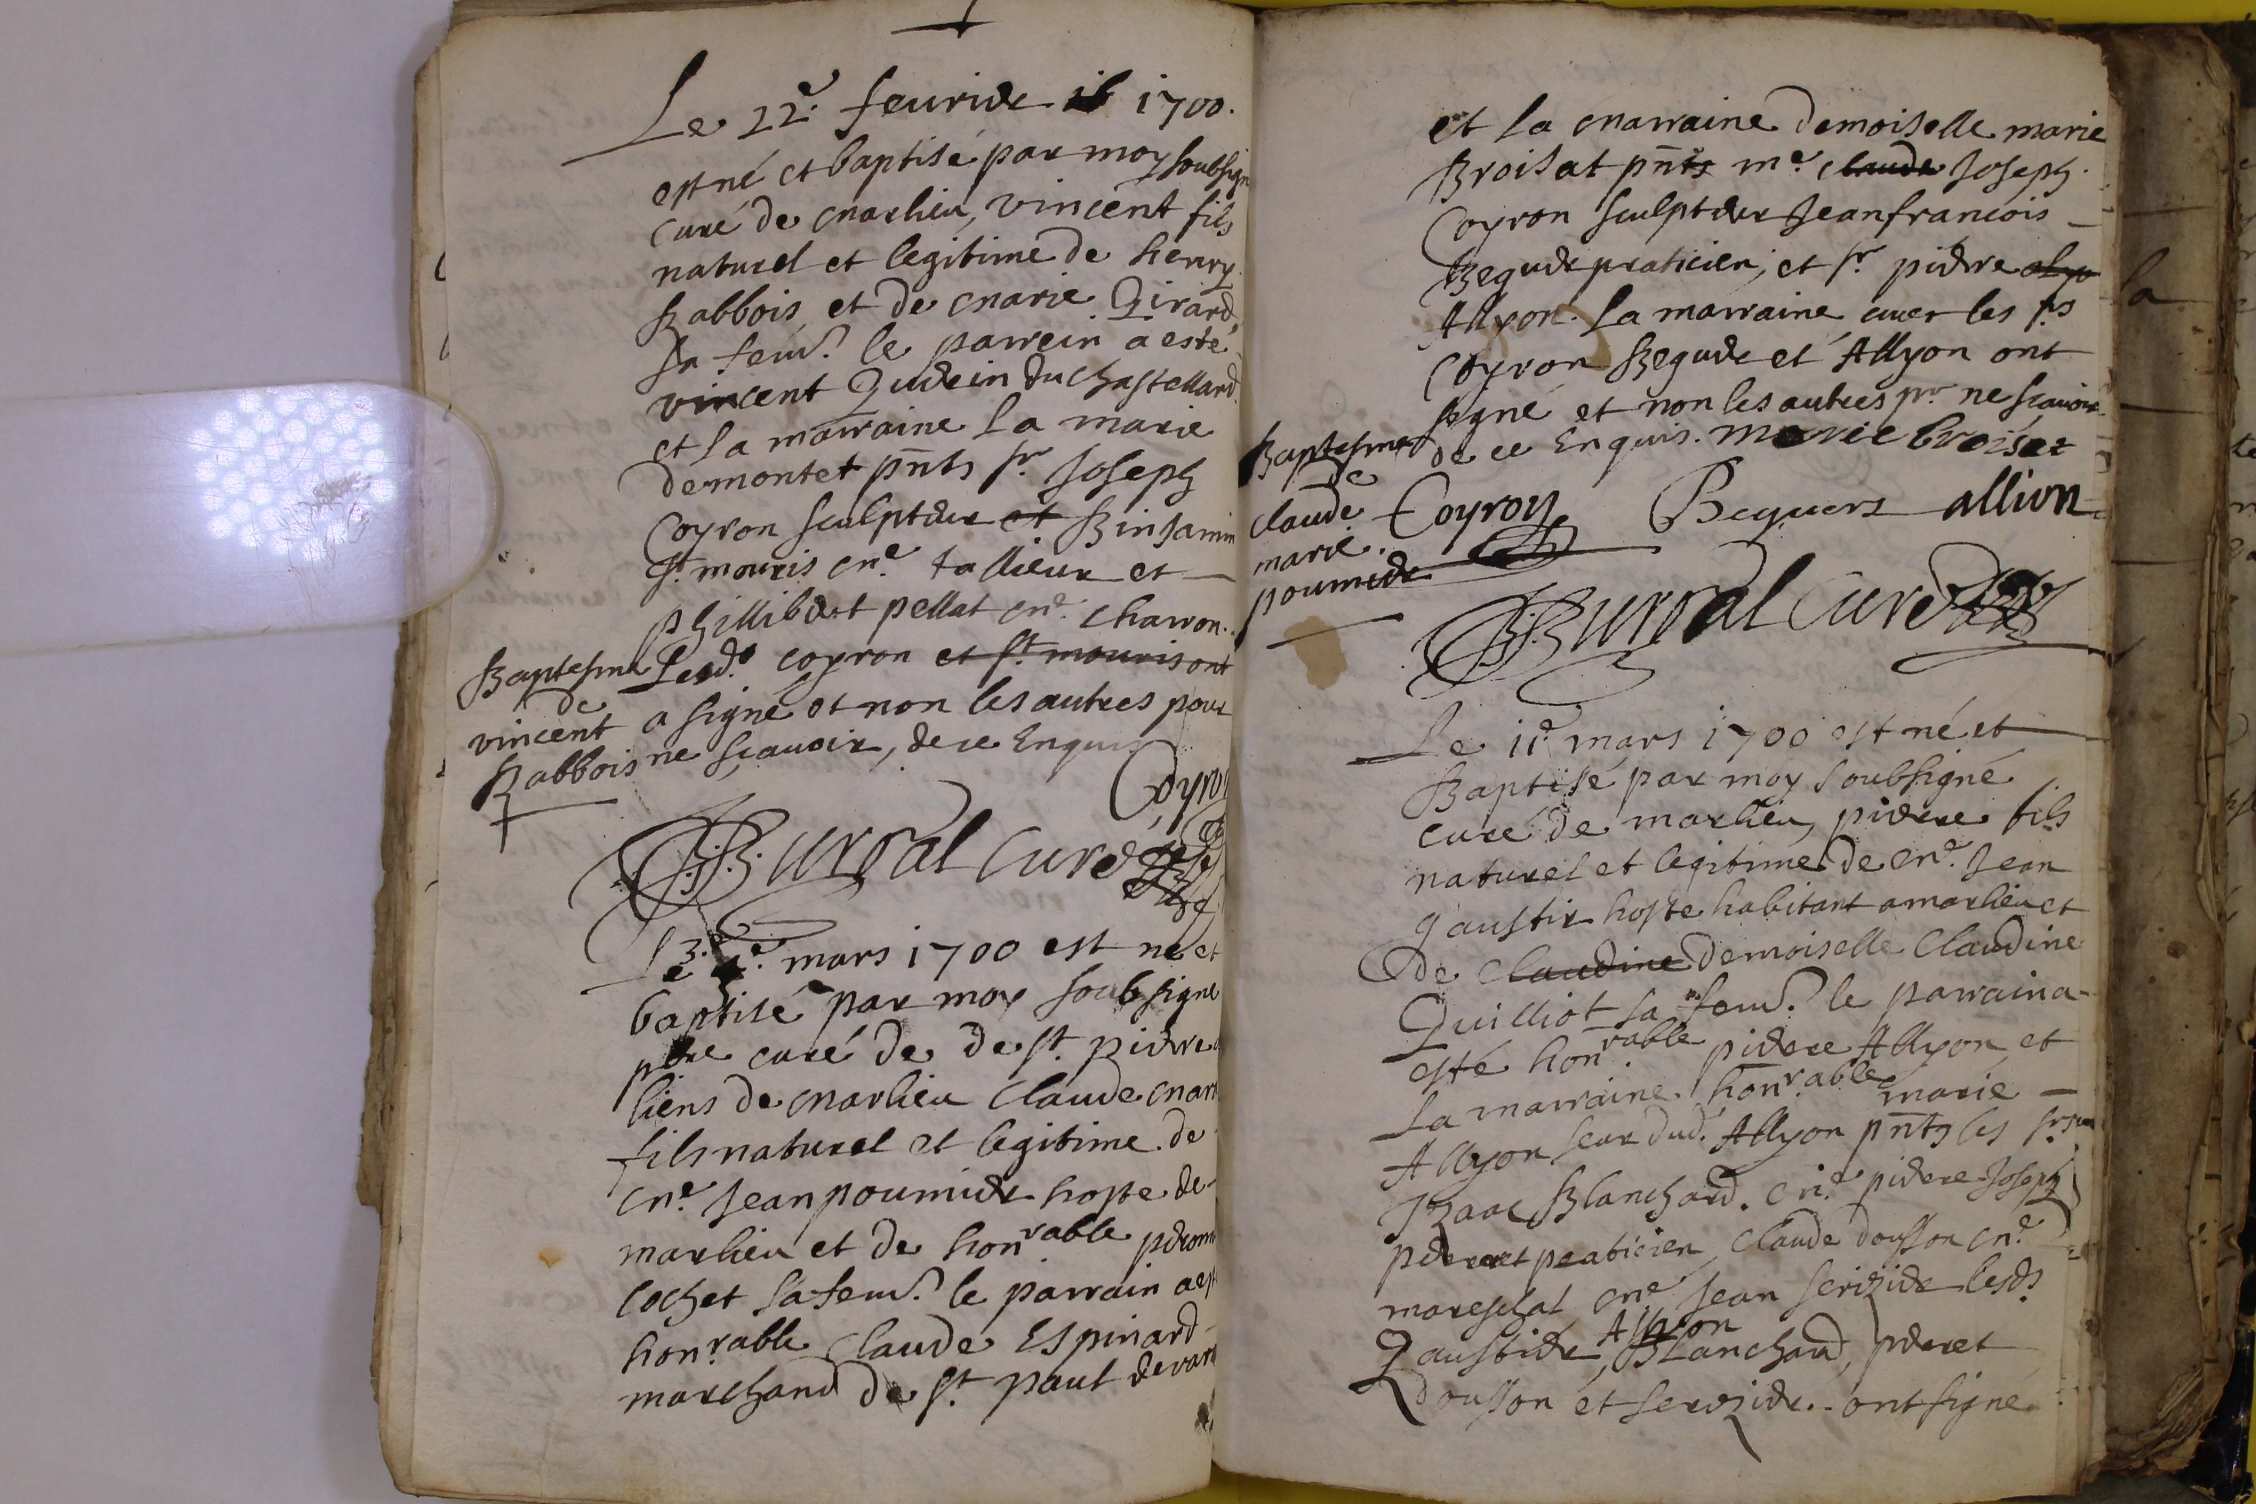 Le 22e. feurier 1700.
est né et baptisé par moy soubsign
curé de marlieu, vincent fils
naturel et legitime de henry
Babbois et de marie Girard,
sa fem?. le parrein a esté
vincent Gudein du chastellard
et la marraine la marie
demontet pnts sr Joseph
Coyron sculpteur et Binjamin
st mouris me. tallieur et
phillibert pellat me. charron.
Lesd. coyron et st mouris ont
a signé et non les autres pour
ne scauoir, de ce Enquis
Baptesme
de
vincent
Babbois
Coyron
Burral curé
Le 3e. mars 1700 est né et
baptisé par moy soubsigne
ptre curé de de st. pierre
liens de marlieu Claude mari
fils naturel et legitime de
me. Jean poumier hoste de
marlieu et de honrable pierom
cochet sa fem?. le parrain a est
honrable Claude Espinard
marchand de st paul devar
et la marraine demoiselle marie
Broisat pnts me. claude Joseph
Coyron sculpteur Jeanfrancois
Begude praticien, et sr. pierre alyo
Allyon. La marraine auec les srs
Coyron Begude et Allyon ont
signé et non les autres pr ne scauoir
de ce Enquis. marie broisat
Baptesme
de
claude
marie
poumier
Coyron Beguers allion
Burral curé
Le 11e mars 1700 est né et
Baptisé par moy soubsigné
curé de marlieu, pierre fils
naturel et legitime de me. Jean
gaustier hoste habitant a marlieu et
De Claudine demoiselle Claudine
Quilliot sa fem?. le parrain a
esté honrable pierre Allyon, et
La marraine. honrable marie
Allyon seur dud. Allyon pnts les srs
Izaac Blanchard. me. pierre Joseph
pderet praticien, Claude dousson me
mareschal me Jean serizier lesds
Gaustier, Allyon Blanchard, pderet
dousson et serizier.. ont signé